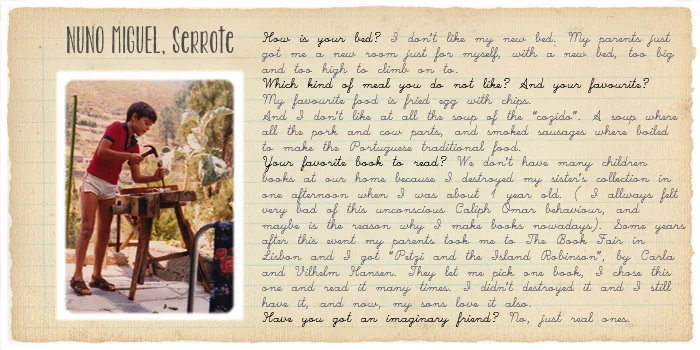 NUNO MIGUEL, Serrote
How is your bed? I don't like my new bed. My parents just
got me a new room just for myself, with a new bed, too big
and too high to climb on to.
Which kind of meal you do not like? And your favourite?
My favourite food is fried egg with chips.
And I don't like at all the soup of the "cozido". A soup where
all the pork and cow parts, and smoked sausages where boiled
to make the Portuguese traditional food.
Your favorite book to read? We don't have many children
books at our home because I destroyed my sister's collection in
one afternoon when I was about 1 year old. ( I allways felt
very bad of this unconscious Caliph Omar behaviour, and
maybe is the reason why I make books nowadays). Some years
after this event my parents took me to The Book Fair in
Lisbon and I got "Petzi and the Island Robinson", by Carla
and Vilhelm Hansen. They let me pick one book, I chose this
one and read it many times. I didn't destroyed it and I still
have it, and now, my sons love it also.
Have you got an imaginary friend? No, just real ones.